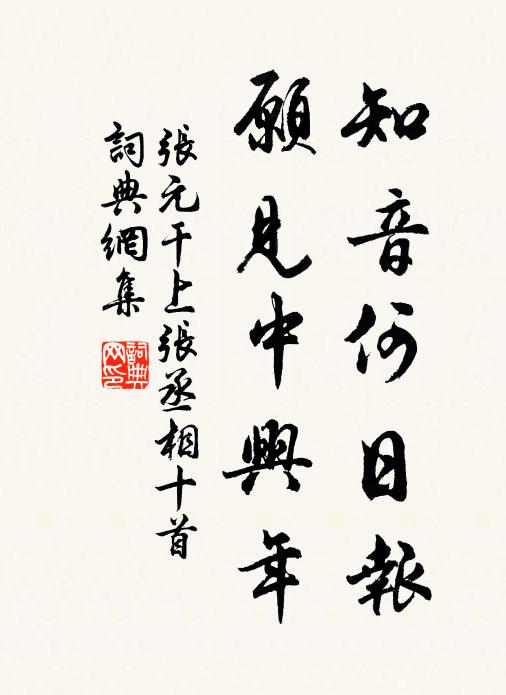 知音何日報
願見中興年
張元干上張丞相十首
詞典網集
詞典網印